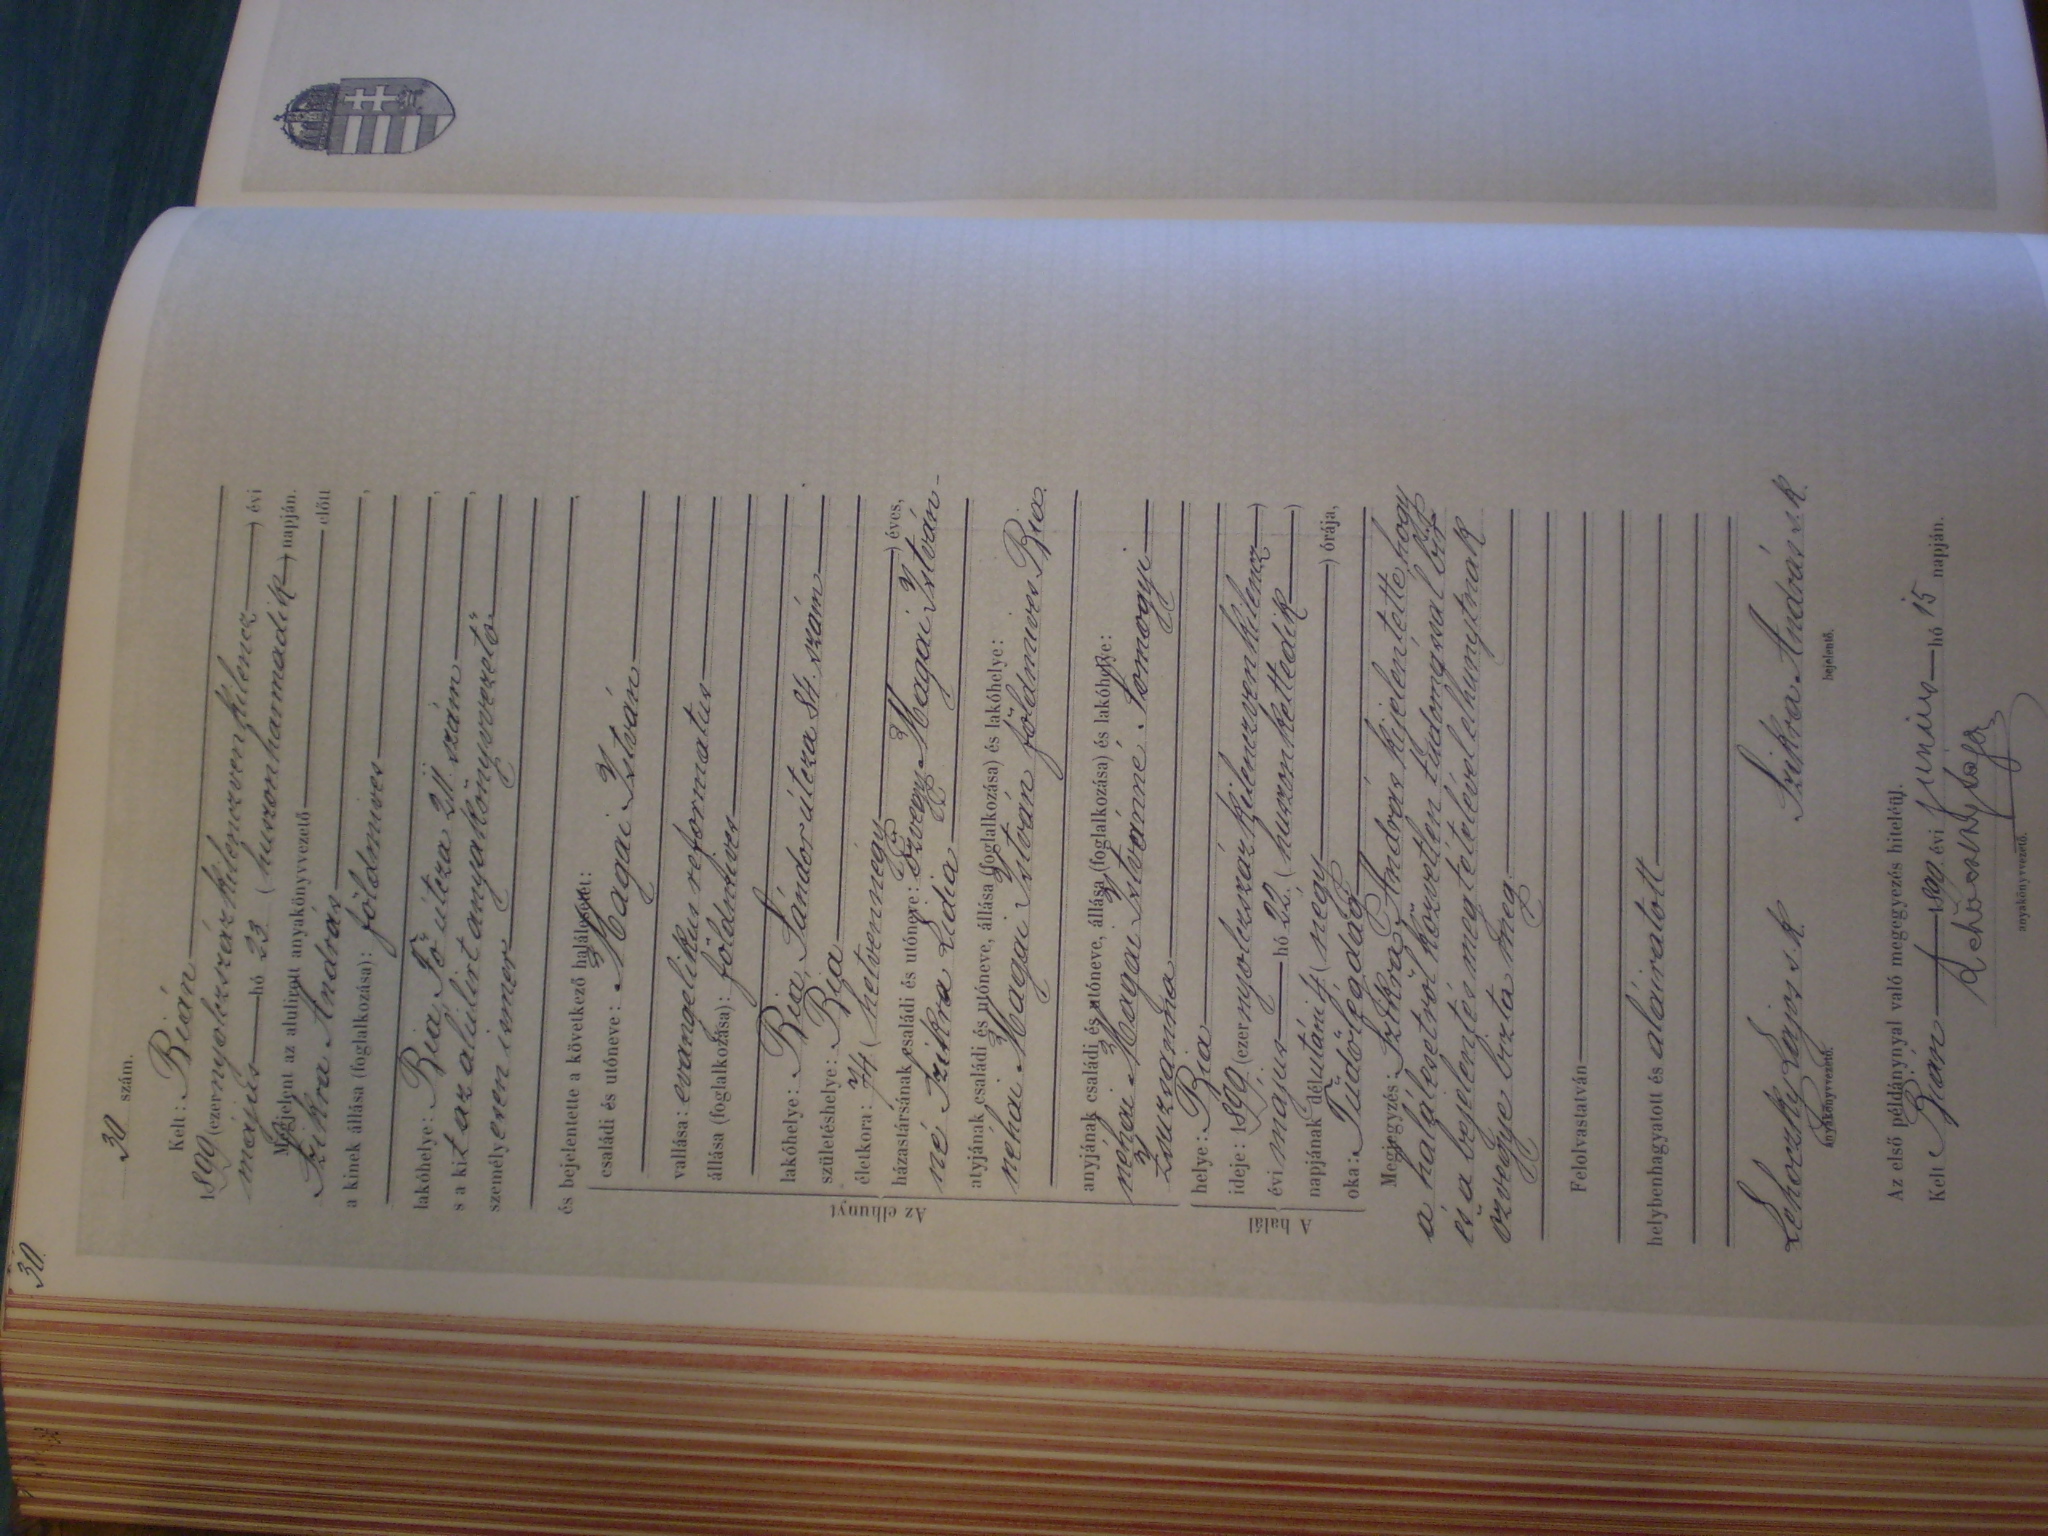 30.
30 szám.
Kelt: Bián
1899 (ezernyolczszázkilenczvenkilencz) évi
május hó 23. (huszonharmadik) napján.
Megjelent az alulirott anyakönyvvezető előtt
Szikra András
a kinek állása (foglalkozása): földmives,
lakóhelye: Bia Fő útcza 211. szám,
s a kit az alulirt anyakönyvvezető,
személyesen ismer
és bejelentette a következő halálesetet:
Az elhunyt
családi és utóneve: Magai István
vallása: evangelikus reformatus
állása (foglalkozása): földmives
lakóhelye: Bia, Sándor útcza 81. szám
születéshelye: Bia
életkora: 74 (hetvennégy) éves,
házastársának családi és utóneve: özvegy Magai István-
né Szikra Lidia
atyjának családi és utóneve, állása (foglalkozása) és lakóhelye:
néhai Magai István földmives Bia.
anyjának családi és utóneve, állása (foglalkozása) és lakóhelye:
néhai Magai Istvánné Somogyi
Zsuzsanna
A halál
helye: Bia
ideje: 1899. (ezernyolczszázkilenczvenkilencz)
évi május hó 22. (huszonkettedik)
napjának délutáni 4 (négy) órája,
oka: Tüdőlégdag
Megjegyzés: Szikra András kijelentette, hogy
a halálesetről közvetlen tudomással bir
és a bejelentés megtételével elhunytnak
özvegye bizta meg.
Felolvastatván
helybenhagyatott és aláiratott
Lehoczky Lajos s. k. Szikra András s. k.
anyakönyvvezető. bejelentő.
Az első példánynyal való megegyezés hiteléül.
Kelt Bián 1899. évi junius hó 15 napján.
anyakönyvvezető.